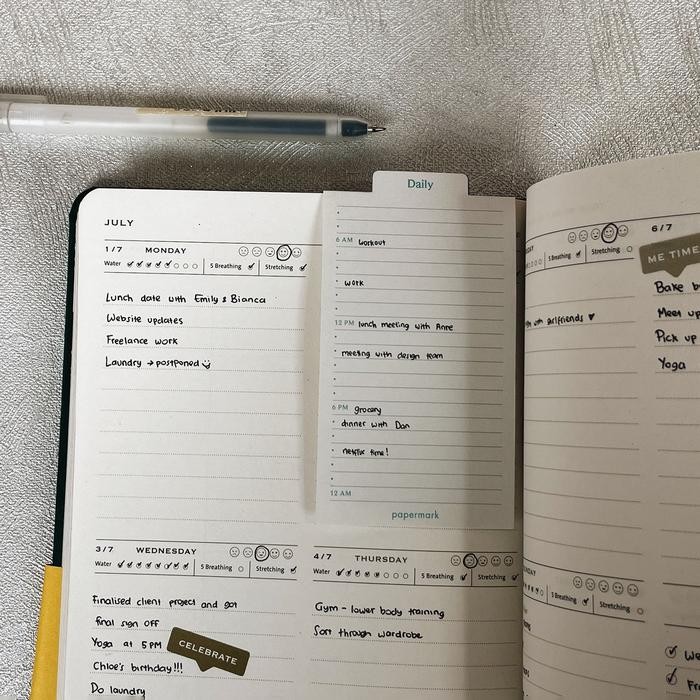 JULY
1/7 MONDAY
Water 5 Breathing Stretching
Lunch date with Emily & Bianca
Website updates
Freelance work
Laundry → postponed
Daily
6 AM workout
work
12 PM lunch meeting with Anne
meeting with design team
6 PM grocery
dinner with Dan
netflix time!
12 AM
papermark
3/7 WEDNESDAY
Water 5 Breathing Stretching
Finalised client project and got
final sign off
Yoga at 5 PM
CELEBRATE
Chloe's birthday!!!
Do laundry
4/7 THURSDAY
Water 5 Breathing Stretching
Gym - lower body training
Sort through wardrobe
5 Breathing Stretching
with girlfriends ♥
5 Breathing Stretching
6/7
ME TIME
Bake
Meet up
Pick up
Yoga